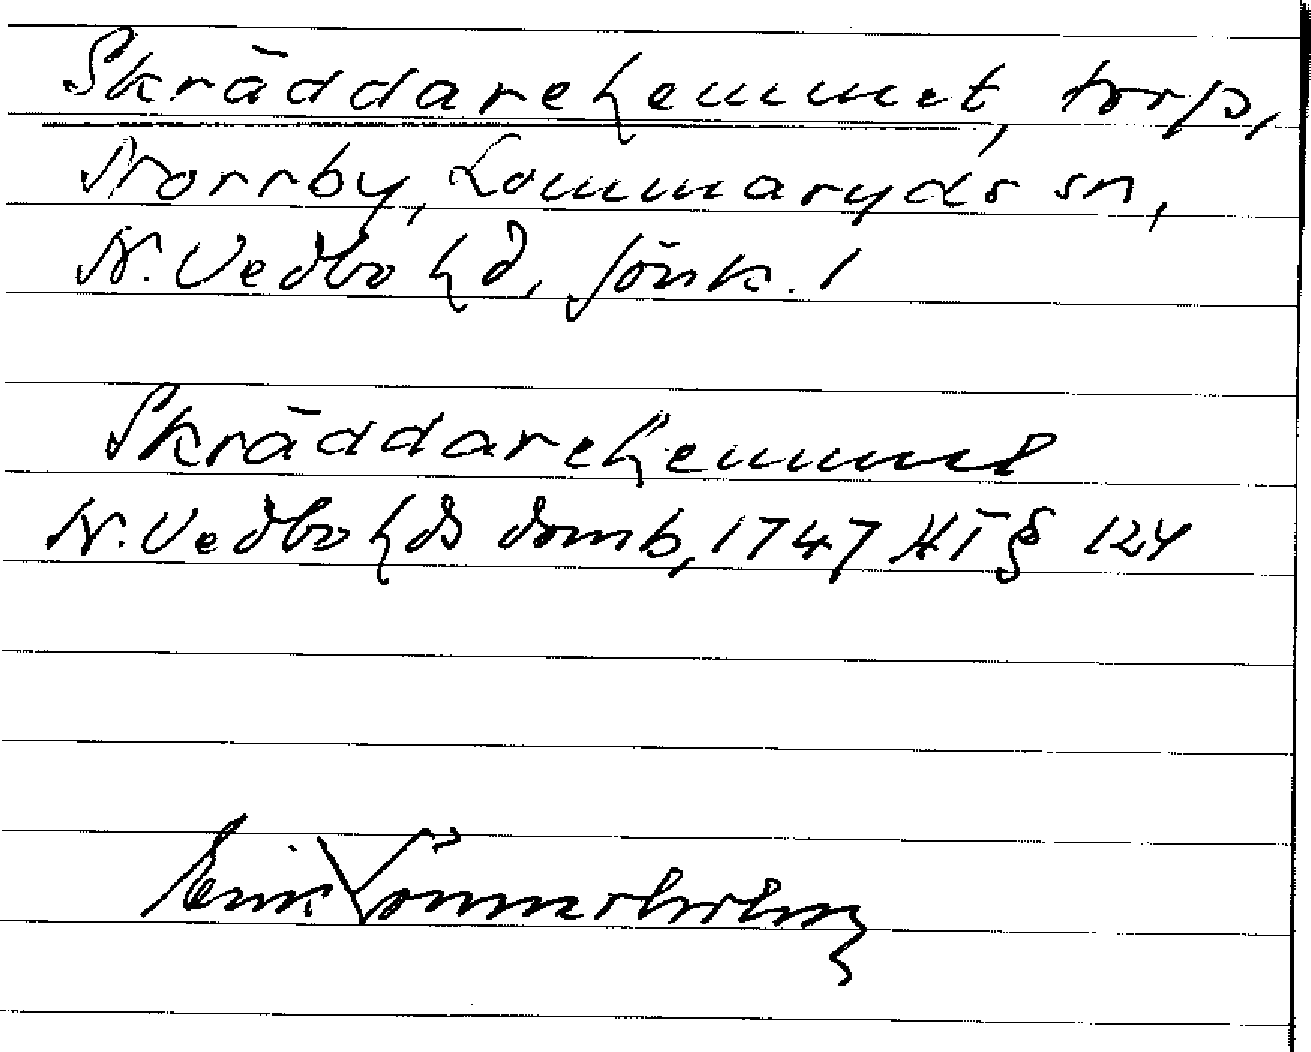 Skräddarehemmet, torp,
Norrby, Lommaryds sn,
N. Vedbo hd, Jönk. l
Skräddarehemmet
N. Vedbo hds domb, 1747 HT § 124
Erik